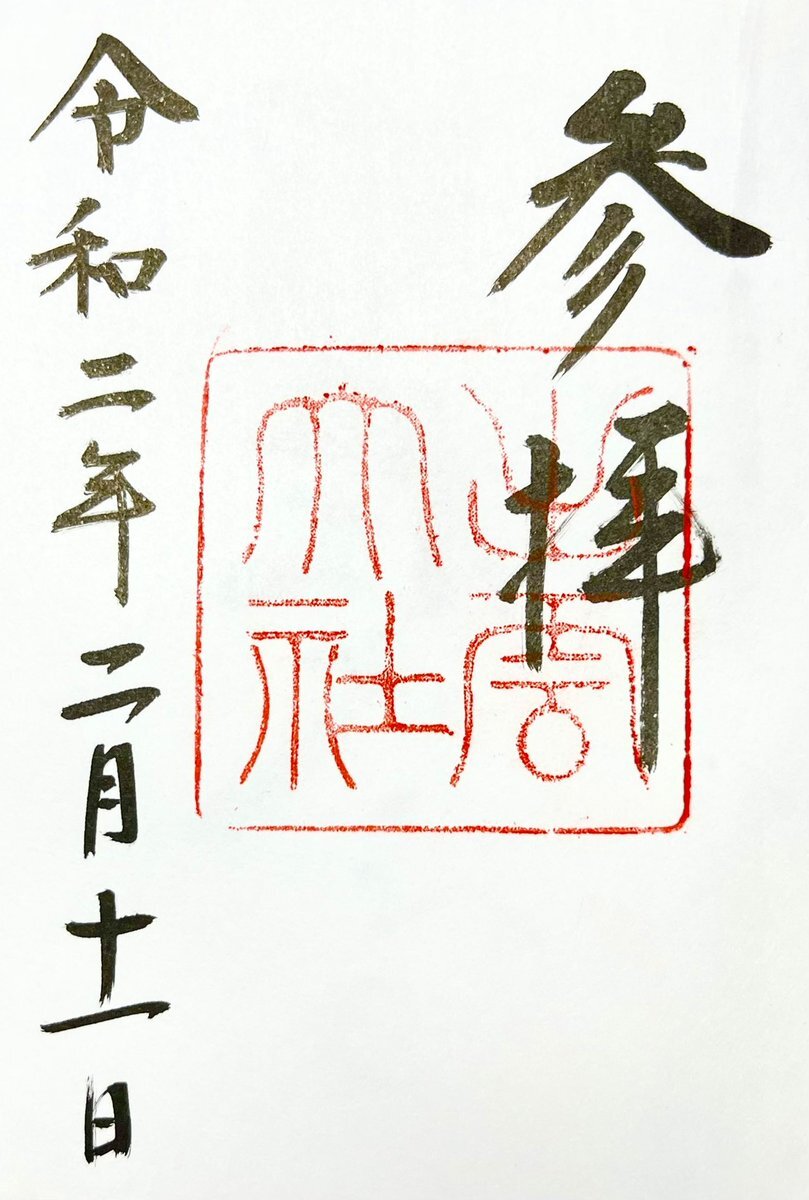 参拝
出雲
大社
令和二年二月十一日